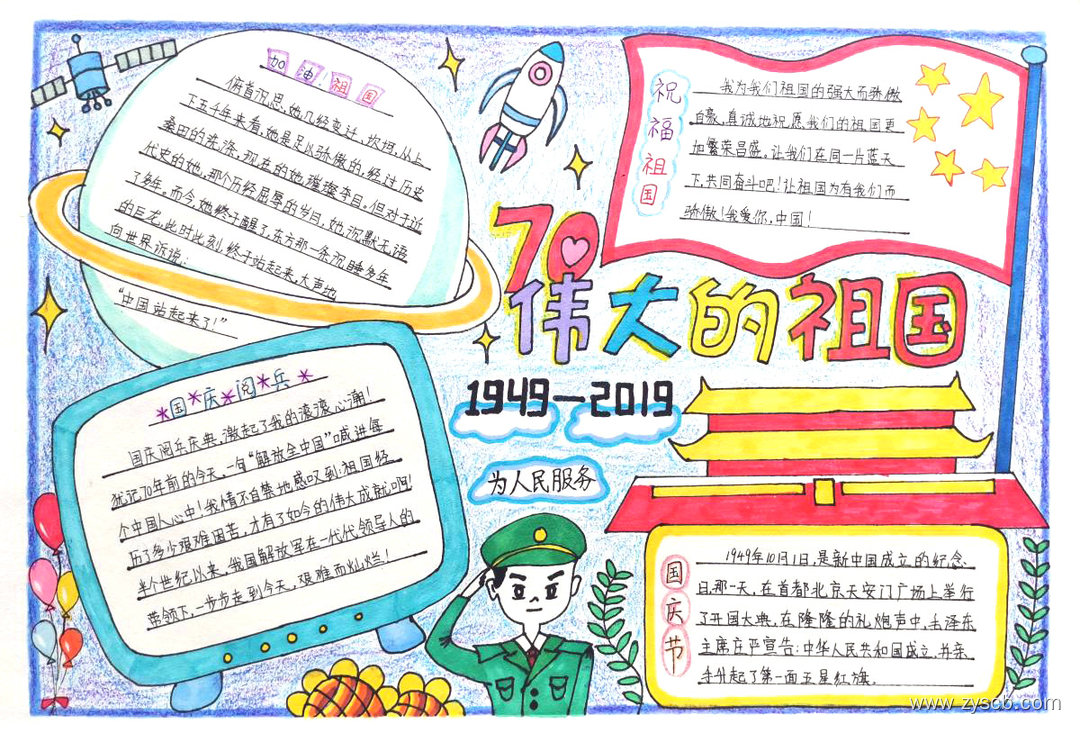 加油!祖国
俯首沉思,她几经变迁,坎坷,从上
下五千年来看,她是足以骄傲的,经过历史
桑田的洗涤,现在的她,璀璨夺目。但对于近
代史的她,那个历经屈辱的岁月,她,沉默无语
了多年。而今,她终于醒了,东方那一条沉睡多年
的巨龙,此时此刻,终于站起来,大声地
向世界诉说:
“中国站起来了!”
祝福祖国
我为我们祖国的强大而骄傲
自豪,真诚地祝愿我们的祖国更
加繁荣昌盛。让我们在同一片蓝天
下,共同奋斗吧!让祖国为有我们而
骄傲!我爱你,中国!
70
伟大的祖国
1949—2019
为人民服务
国庆阅兵
国庆阅兵庆典,激起了我的滚滚心潮!
犹记70年前的今天,一句“解放全中国”喊进每
个中国人心中!我情不自禁地感叹到:祖国经
历了多少艰难困苦,才有了如今的伟大成就啊!
半个世纪以来,我国解放军在一代代领导人的
带领下,一步步走到今天,艰难而灿烂!
国庆节
1949年10月1日,是新中国成立的纪念
日,那一天,在首都北京天安门广场上举行
了开国大典,在隆隆的礼炮声中,毛泽东
主席庄严宣告:中华人民共和国成立.并亲
手升起了第一面五星红旗.
www.zyscb.com